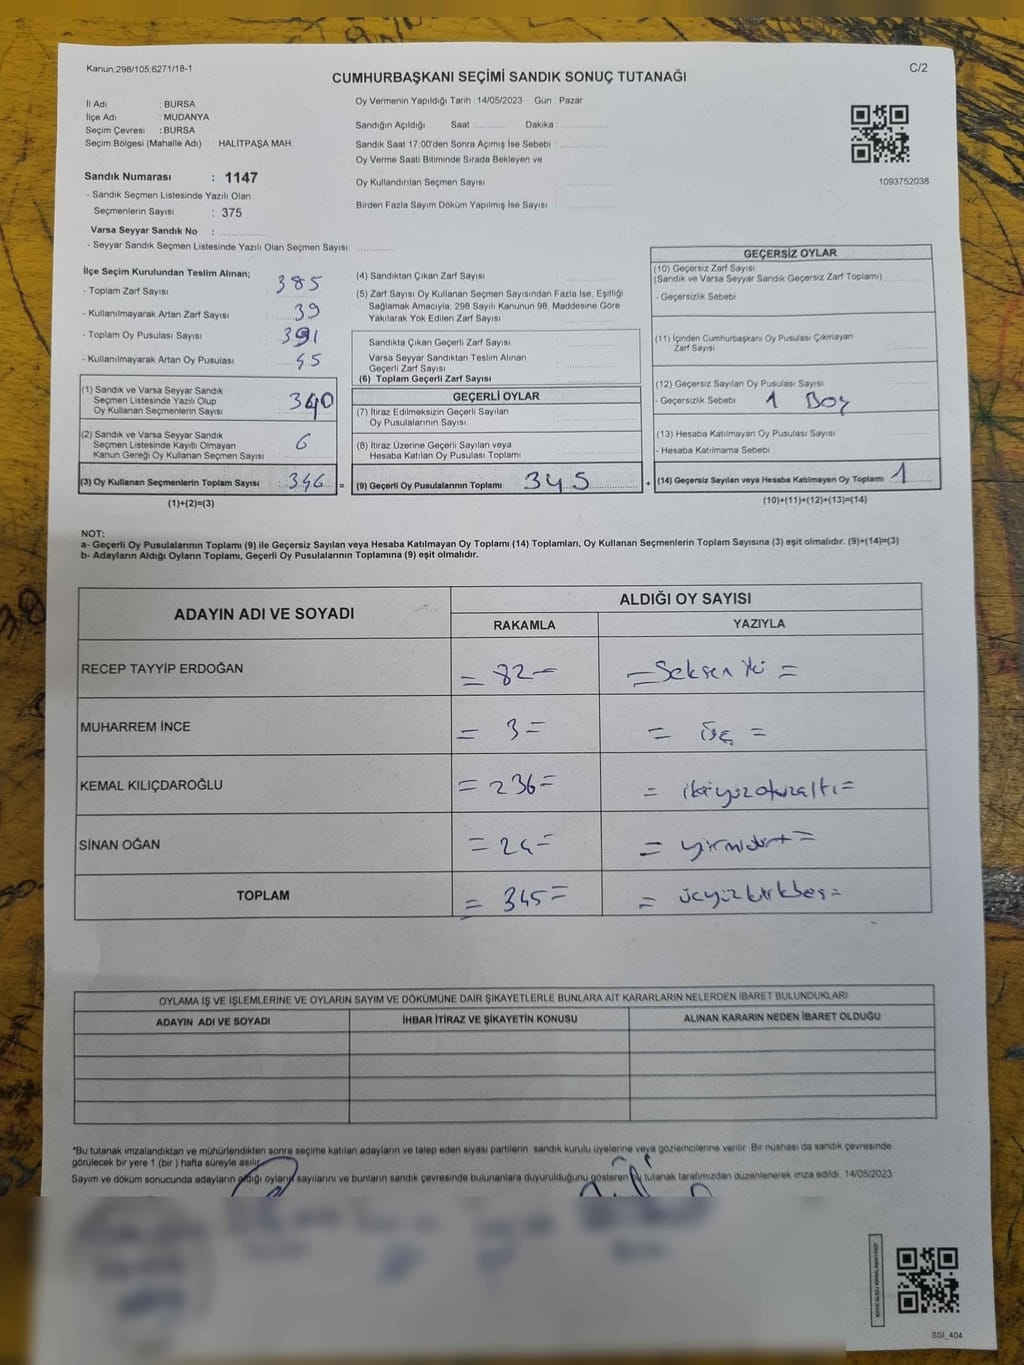 Kanun;298/105;6271/18-1
C/2
CUMHURBAŞKANI SEÇİMİ SANDIK SONUÇ TUTANAĞI
İl Adı : BURSA
İlçe Adı : MUDANYA
Seçim Çevresi : BURSA
Seçim Bölgesi (Mahalle Adı) : HALİTPAŞA MAH.
Sandık Numarası : 1147
- Sandık Seçmen Listesinde Yazılı Olan
Seçmenlerin Sayısı : 375
Varsa Seyyar Sandık No : ..............
- Seyyar Sandık Seçmen Listesinde Yazılı Olan Seçmen Sayısı: ...........
Oy Vermenin Yapıldığı Tarih : 14/05/2023 Gün : Pazar
Sandığın Açıldığı Saat :.......... Dakika :..............
Sandık Saat 17:00'den Sonra Açımış İse Sebebi :..............
Oy Verme Saati Bitiminde Sırada Bekleyen ve
Oy Kullandırılan Seçmen Sayısı ..............
Birden Fazla Sayım Döküm Yapılmış İse Sayısı : ..............
1093752038
İlçe Seçim Kurulundan Teslim Alınan;
- Toplam Zarf Sayısı : 385
- Kullanılmayarak Artan Zarf Sayısı : 39
- Toplam Oy Pusulası Sayısı : 391
- Kullanılmayarak Artan Oy Pusulası : 45
(1) Sandık ve Varsa Seyyar Sandık
Seçmen Listesinde Yazılı Olup
Oy Kullanan Seçmenlerin Sayısı : 340
(2) Sandık ve Varsa Seyyar Sandık
Seçmen Listesinde Kayıtlı Olmayan
Kanun Gereği Oy Kullanan Seçmen Sayısı : 6
(3) Oy Kullanan Seçmenlerin Toplam Sayısı : 346 =
(1)+(2)=(3)
(4) Sandıktan Çıkan Zarf Sayısı
(5) Zarf Sayısı Oy Kullanan Seçmen Sayısından Fazla İse, Eşitliği
Sağlamak Amacıyla; 298 Sayılı Kanunun 98. Maddesine Göre
Yakılarak Yok Edilen Zarf Sayısı
Sandıkta Çıkan Geçerli Zarf Sayısı
Varsa Seyyar Sandıktan Teslim Alınan
Geçerli Zarf Sayısı
(6) Toplam Geçerli Zarf Sayısı
GEÇERLİ OYLAR
(7) İtiraz Edilmeksizin Geçerli Sayılan
Oy Pusulalarının Sayısı
(8) İtiraz Üzerine Geçerli Sayılan veya
Hesaba Katılan Oy Pusulası Toplamı
(9) Geçerli Oy Pusulalarının Toplamı 345 +
GEÇERSİZ OYLAR
(10) Geçersiz Zarf Sayısı
(Sandık ve Varsa Seyyar Sandık Geçersiz Zarf Toplamı)
- Geçersizlik Sebebi
(11) İçinden Cumhurbaşkanı Oy Pusulası Çıkmayan
Zarf Sayısı
(12) Geçersiz Sayılan Oy Pusulası Sayısı
- Geçersizlik Sebebi 1 Boş
(13) Hesaba Katılmayan Oy Pusulası Sayısı
- Hesaba Katılmama Sebebi
(14) Geçersiz Sayılan veya Hesaba Katılmayan Oy Toplamı 1
(10)+(11)+(12)+(13)=(14)
NOT:
a- Geçerli Oy Pusulalarının Toplamı (9) ile Geçersiz Sayılan veya Hesaba Katılmayan Oy Toplamı (14) Toplamları, Oy Kullanan Seçmenlerin Toplam Sayısına (3) eşit olmalıdır. (9)+(14)=(3)
b- Adayların Aldığı Oyların Toplamı, Geçerli Oy Pusulalarının Toplamına (9) eşit olmalıdır.
ADAYIN ADI VE SOYADI
ALDIĞI OY SAYISI
RAKAMLA YAZIYLA
RECEP TAYYİP ERDOĞAN = 82 = = Seksen iki =
MUHARREM İNCE = 3 = = üç =
KEMAL KILIÇDAROĞLU = 236 = = ikiyüzotuzaltı =
SİNAN OĞAN = 24 = = yirmidört =
TOPLAM = 345 = = üçyüzkırkbeş =
OYLAMA İŞ VE İŞLEMLERİNE VE OYLARIN SAYIM VE DÖKÜMÜNE DAİR ŞİKAYETLERLE BUNLARA AİT KARARLARIN NELERDEN İBARET BULUNDUKLARI
ADAYIN ADI VE SOYADI İHBAR İTİRAZ VE ŞİKAYETİN KONUSU ALINAN KARARIN NEDEN İBARET OLDUĞU
*Bu tutanak imzalandıktan ve mühürlendikten sonra seçime katılan adayların ve talep eden siyasi partilerin sandık kurulu üyelerine veya gözlemcilerine verilir. Bir nüshası da sandık çevresinde
görülecek bir yere 1 (bir ) hafta süreyle asılır.
Sayım ve döküm sonucunda adayların aldığı oyların sayılarını ve bunların sandık çevresinde bulunanlara duyurulduğunu gösteren bu tutanak tarafımızdan düzenlenerek imza edildi. 14/05/2023
SSI_404